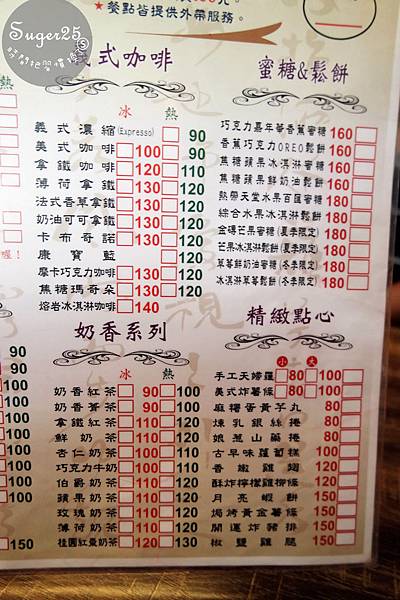 Suger25
★餐點皆提供外帶服務。
義式咖啡
冰 熱
義式濃縮(Expresso) 90
美式咖啡 100 90
拿鐵咖啡 120 110
薄荷拿鐵 130 120
法式香草拿鐵 130 120
奶油可可拿鐵 130 120
卡布奇諾 130 120
康寶藍 120
摩卡巧克力咖啡 130 120
焦糖瑪奇朵 130 120
熔岩冰淇淋咖啡 140
蜜糖&鬆餅
巧克力嘉年華香蕉蜜糖 160
香蕉巧克力OREO鬆餅 160
焦糖蘋果冰淇淋蜜糖 160
焦糖蘋果鮮奶油鬆餅 160
熱帶天堂水果百匯蜜糖 180
綜合水果冰淇淋鬆餅 180
金磚芒果蜜糖(夏季限定) 180
芒果冰淇淋鬆餅(夏季限定) 180
草莓鮮奶油蜜糖(冬季限定) 180
冰淇淋草莓鬆餅(冬季限定) 180
奶香系列
冰 熱
奶香紅茶 90 100
奶香青茶 90 100
拿鐵紅茶 110 100
鮮奶茶 110 100
杏仁奶茶 100 100
巧克力牛奶 100 100
伯爵奶茶 110 120
蘋果奶茶 110 120
玫瑰奶茶 110 120
薄荷奶茶 110 120
桂圓紅棗奶茶 120 120
精緻點心
小 大
手工天婦羅 80 100
美式炸薯條 80 100
麻糬蛋黃芋丸 80
煉乳銀絲捲 80
娘惹山藥捲 80
古早味蘿蔔糕 100
香嫩雞翅 120
酥炸檸檬雞柳條 120
月亮蝦餅 150
焗烤黃金薯條 150
開運炸豬排 150
椒鹽雞腿 150
喔!
90
90
100
100
100
100
100
100
100
150